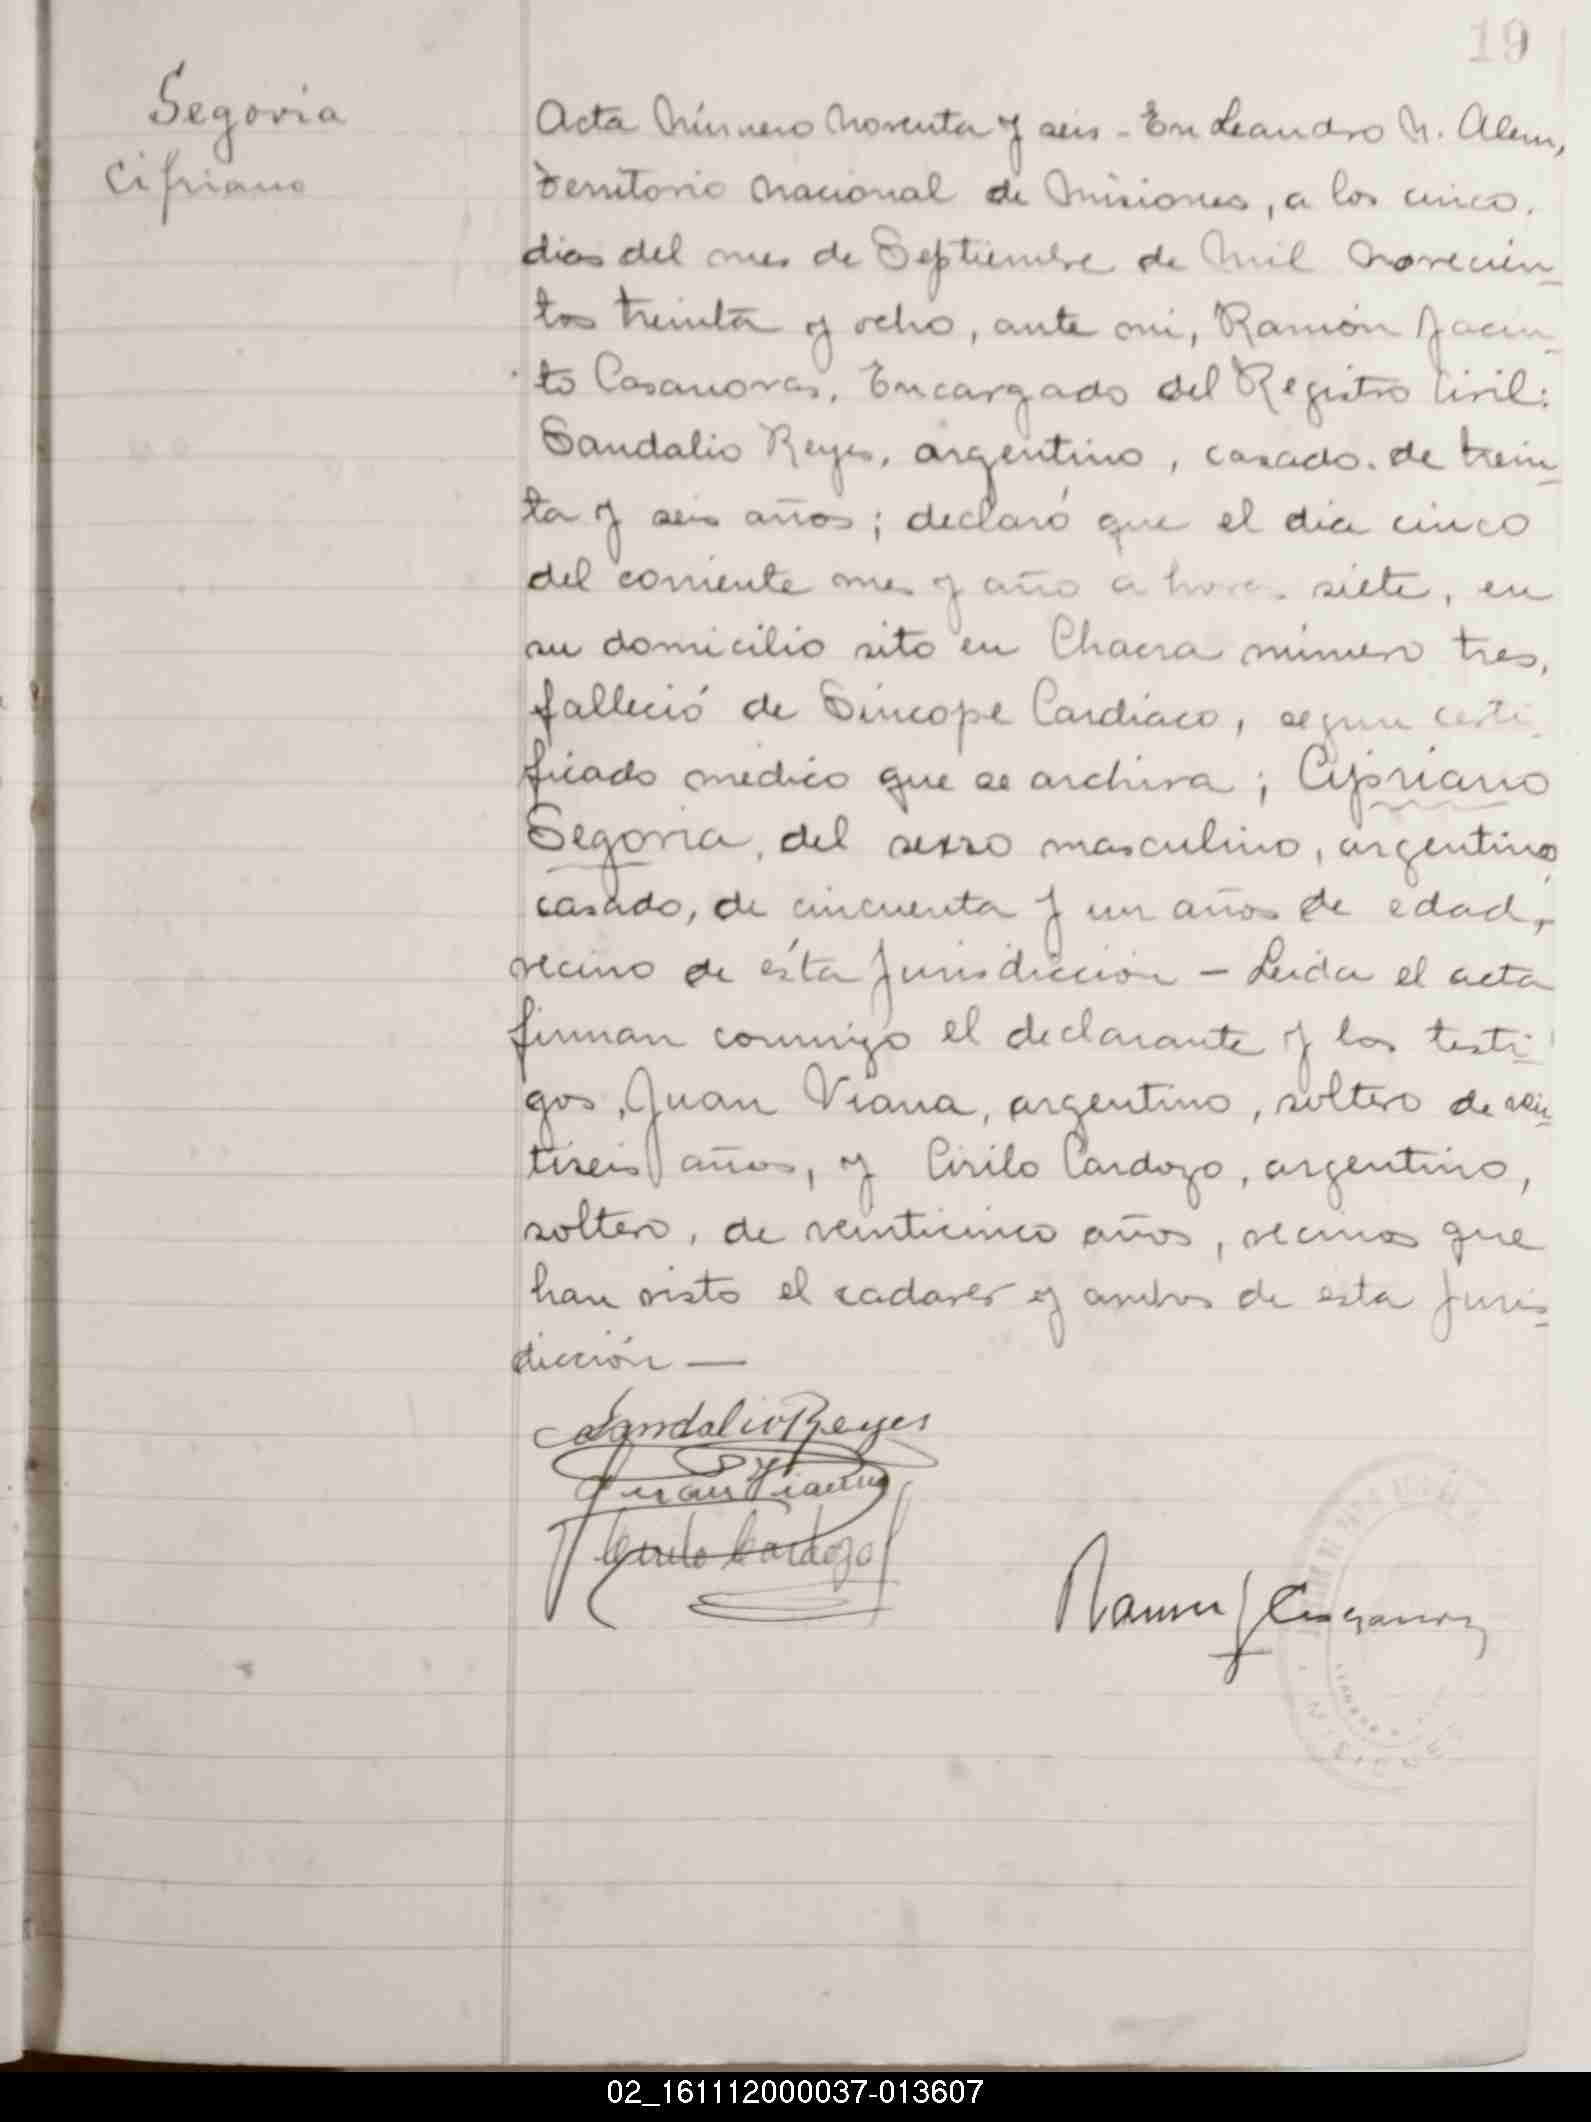 19
Segovia
Cipriano
Acta Número Noventa y seis - En Leandro N. Alem,
Territorio Nacional de Misiones, a los cinco.
dias del mes de Septiembre de Mil Novecien-
tos treinta y ocho, ante mi, Ramón Jacin-
to Casanovas, Encargado del Registro Civil:
Sandalio Reyes, argentino, casado. de trein-
ta y seis años; declaró que el dia cinco
del corriente mes y año a horas siete, en
su domicilio sito en Chacra número tres,
falleció de Síncope Cardíaco, segun certi-
ficado medico que se archiva; Cipriano
Segovia, del sexso masculino, argentino,
casado, de cincuenta y un años de edad,
vecino de ésta Jurisdicción - Leida el acta
firman conmigo el declarante y los testi-
gos, Juan Viana, argentino, soltero de vein-
tiseis años, y Cirilo Cardozo, argentino,
soltero, de veinticinco años, vecinos que
han visto el cadaver y ambos de esta Juris-
dicción —
Sandalio Reyes
Juan Viana
Cirilo Cardozo
Ramon J Casanovas
MISIONES
02_161112000037-013607